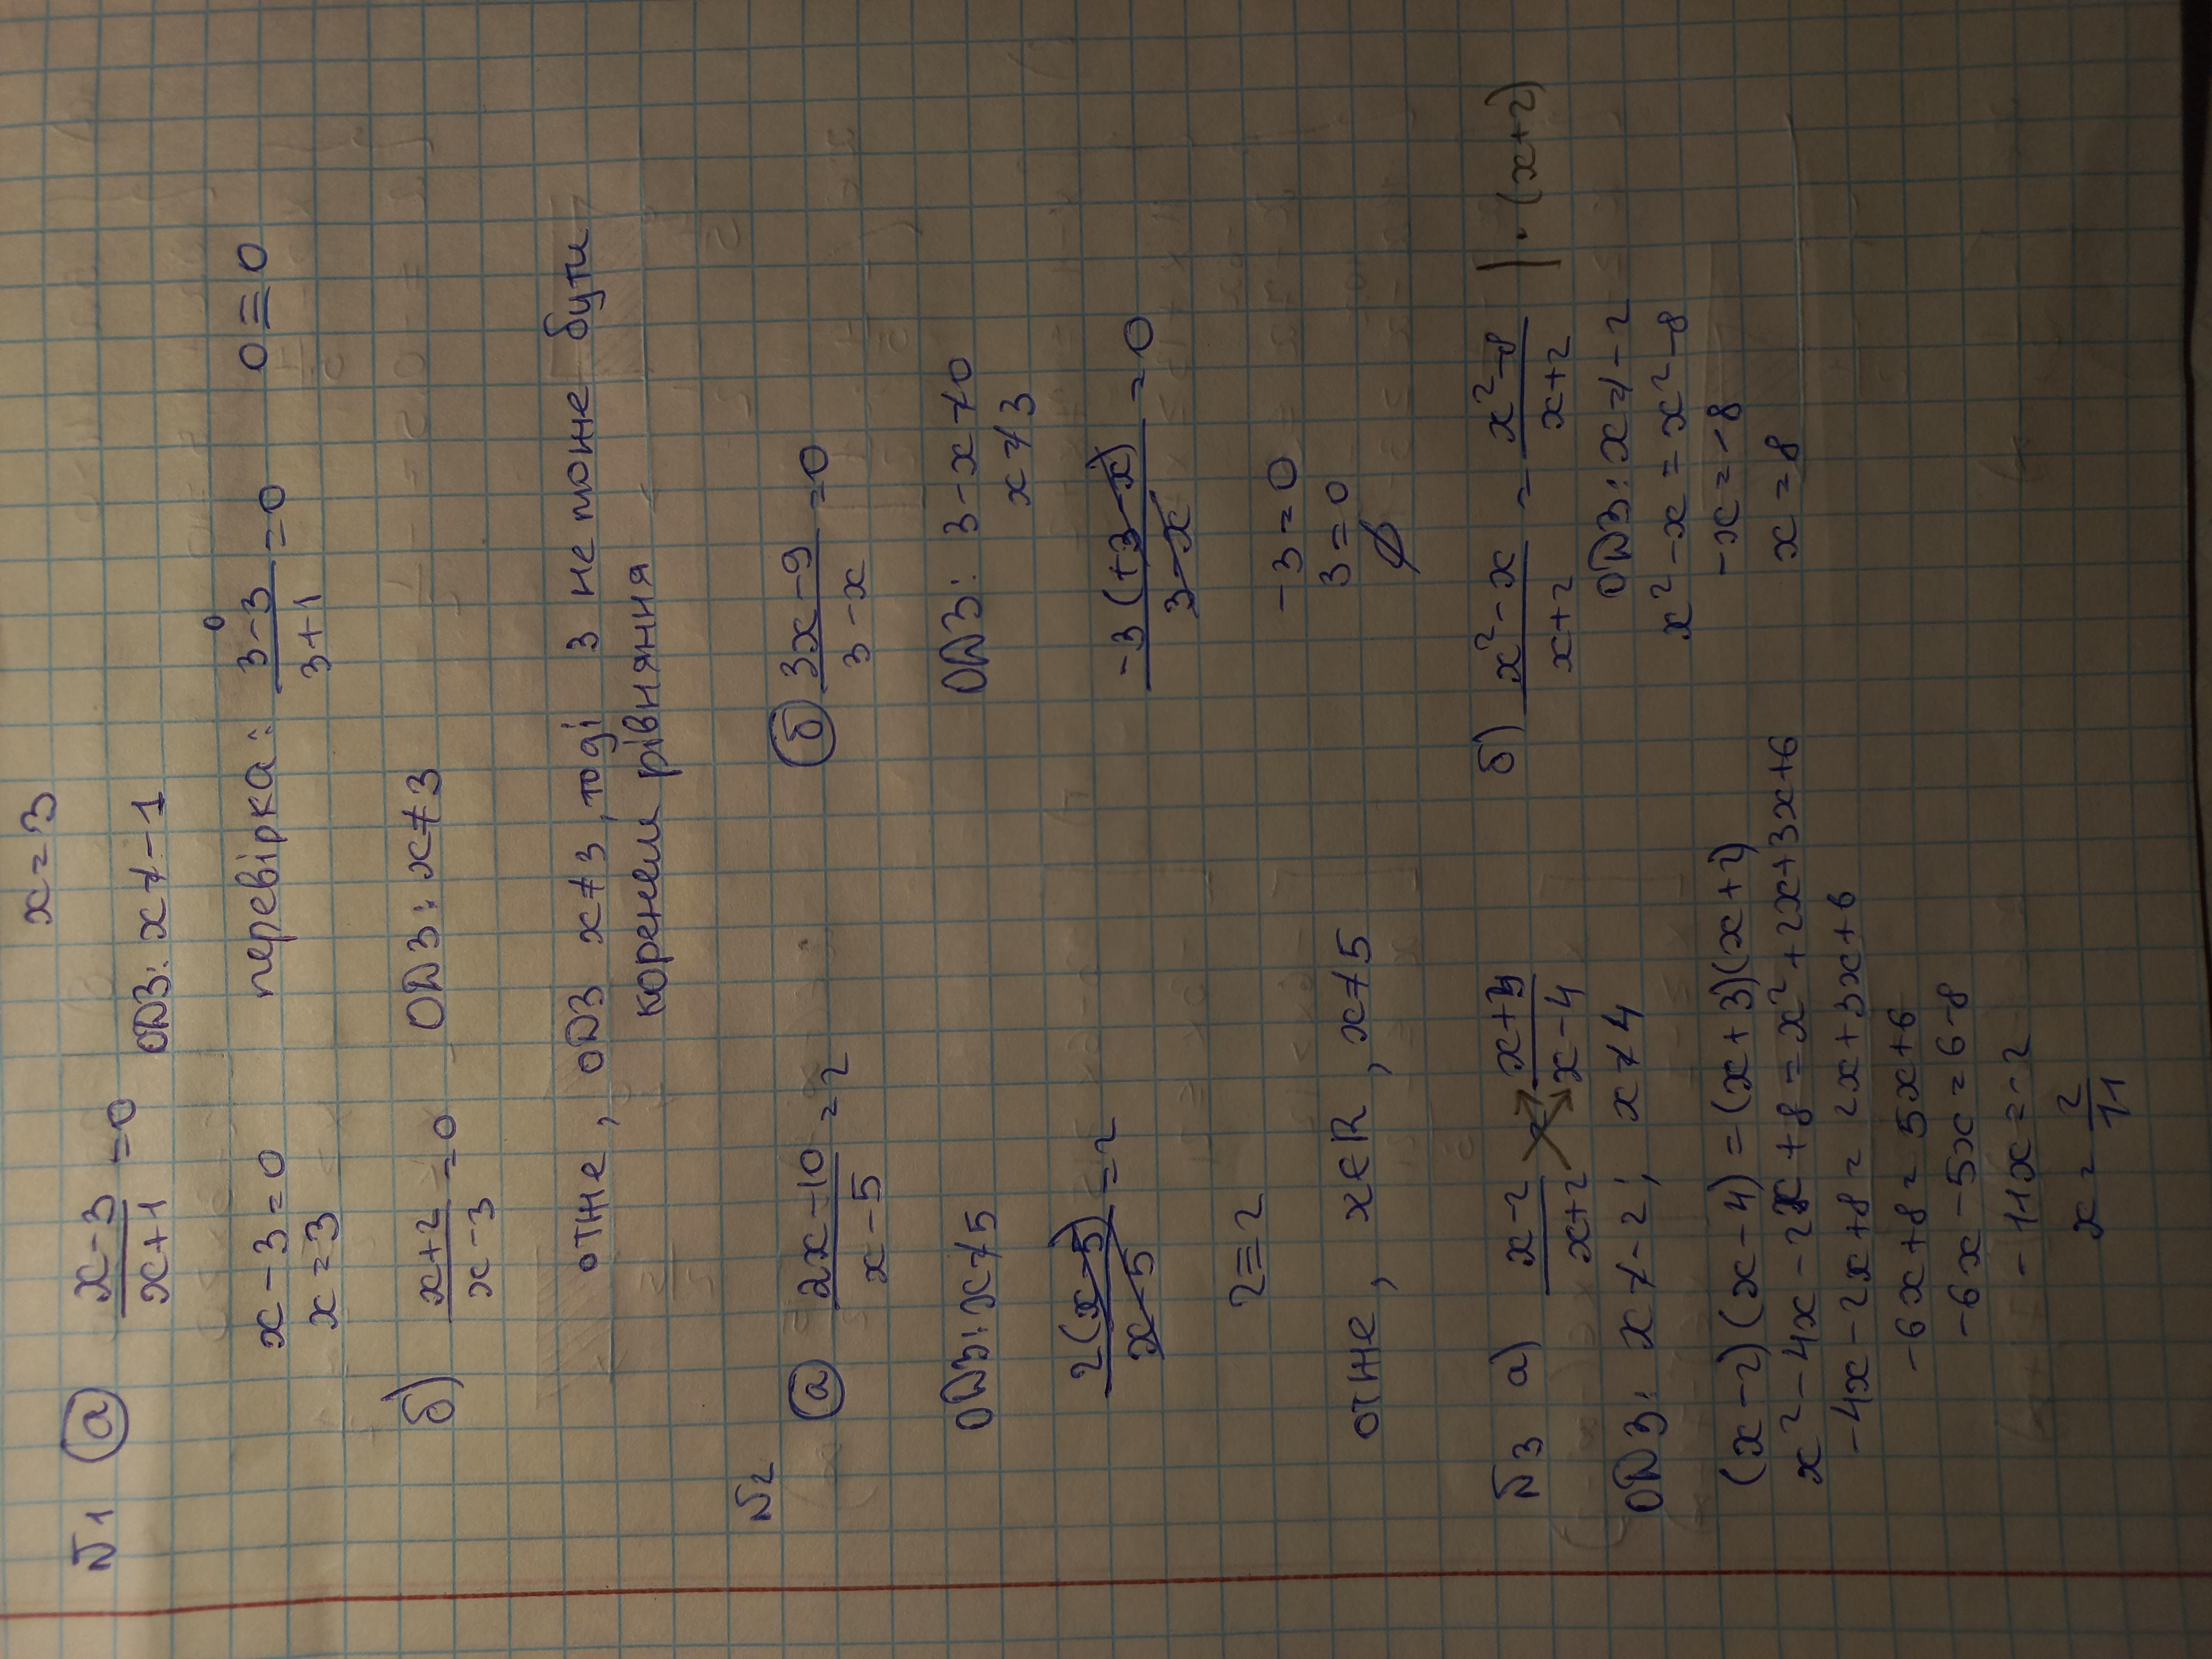 x=3
N1 а) (x-3)/(x+1) =0 ОДЗ: x≠-1
x-3=0 перевірка: (3-3)/(3+1) =0 0≡0
0
x=3
б) (x+2)/(x-3) =0 ОДЗ: x≠3
отже, ОДЗ x≠3, тоді 3 не може бути
коренем рівняння
N2
а) (2x-10)/(x-5) =2 б) (3x-9)/(3-x) =0
ОДЗ: x≠5 ОДЗ: 3-x≠0
x≠3
2(x-5)/(x-5) =2 -3(+3-x)/(3-x) =0
2≡2 -3=0
3=0
отже, x∈R, x≠5 ∅
N3 а) (x-2)/(x+2) = (x+3)/(x-4) б) (x²-x)/(x+2) = (x²-8)/(x+2) |·(x+2)
ОДЗ: x≠-2; x≠4 ОДЗ: x≠-2
(x-2)(x-4)=(x+3)(x+2) x²-x=x²-8
x²-4x-2x+8=x²+2x+3x+6 -x=-8
-4x-2x+8=2x+3x+6 x=8
-6x+8=5x+6
-6x-5x=6-8
-11x=-2
x=2/11